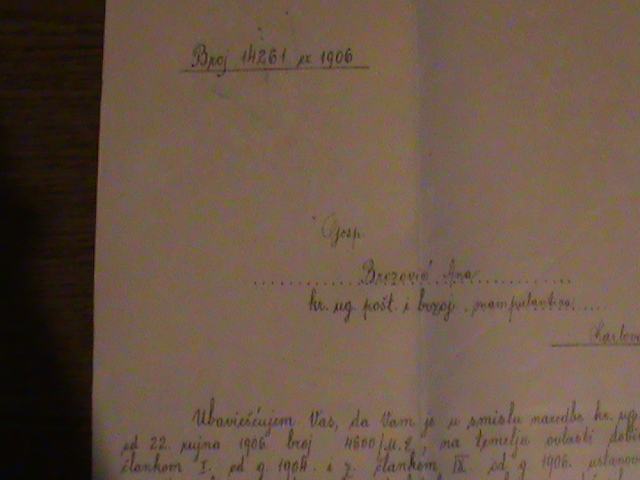 Broj 14261 ex 1906
Gosp.
Brozović Ana
kr. ug. pošt. i brzoj. manipulantica
Karlova
Ubaviešćujem Vas, da Vam je u smislu naredbe kr. ug.
od 22. rujna 1906 broj 4600/M.E., na temelju ovlasti dobi
člankom I. od g. 1904. i z. člankom IX. od g. 1906. ustanov